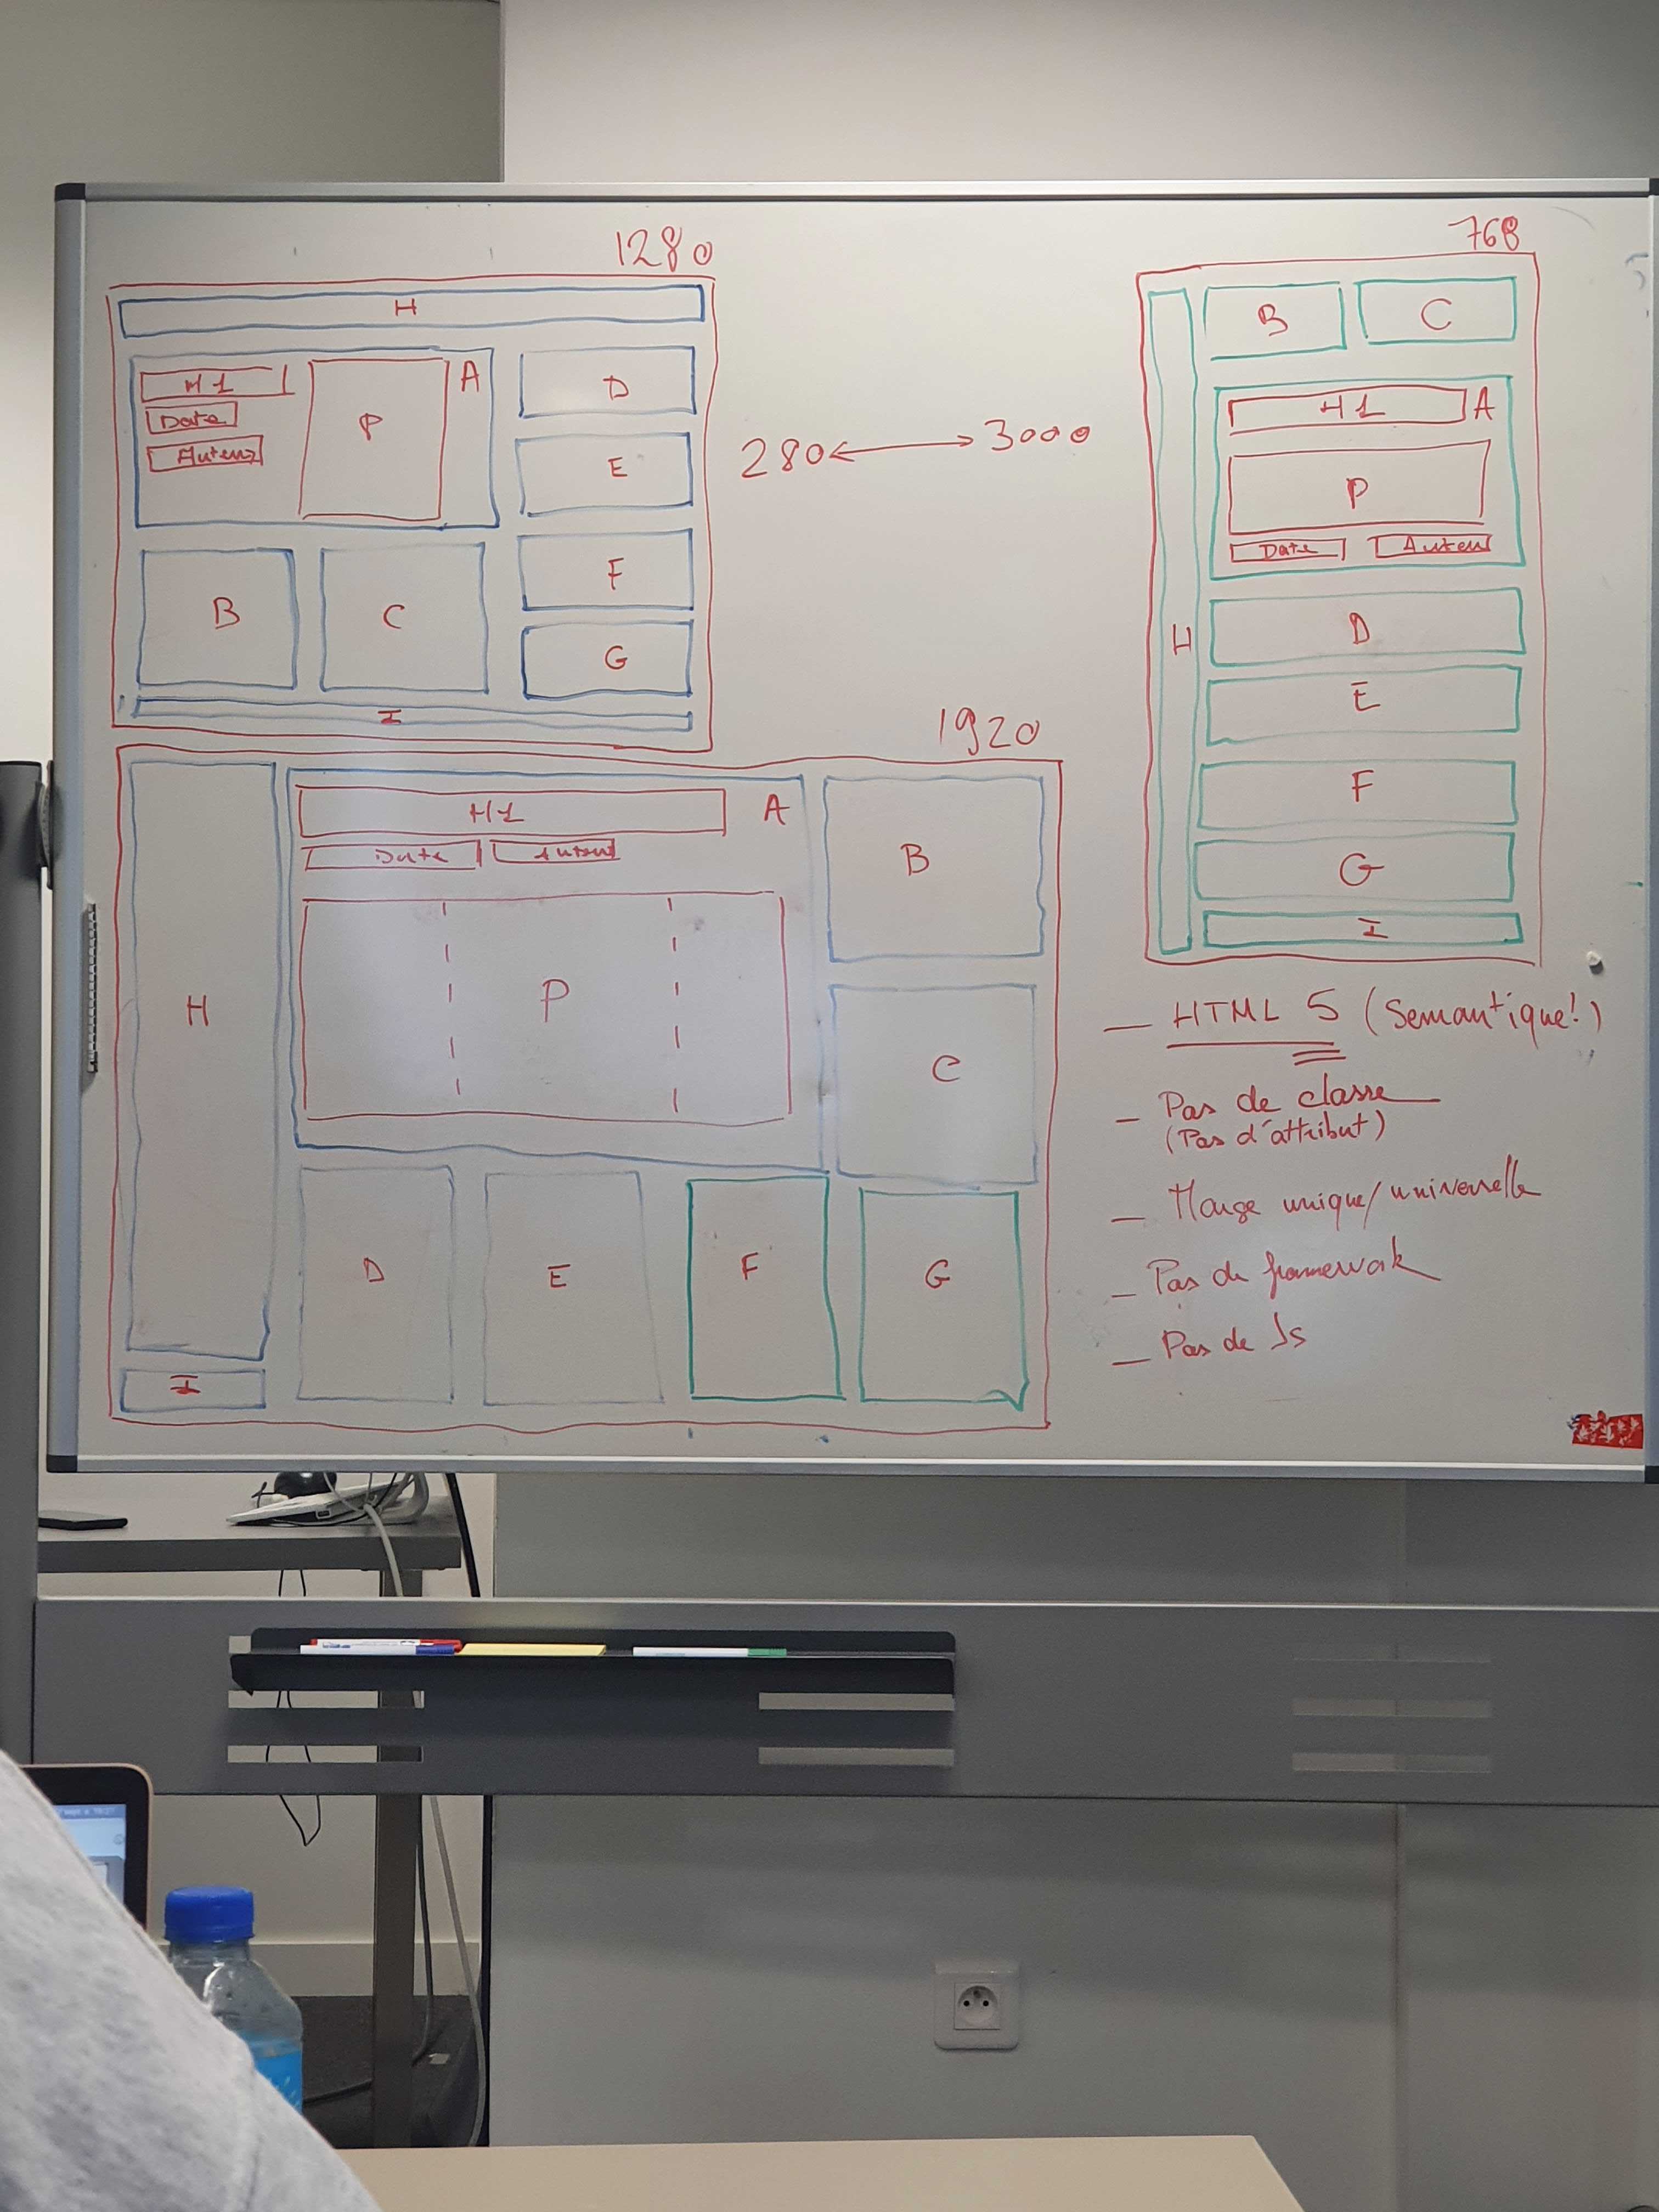 1280
H
H1
A
Date
P
Auteur
D
E
F
G
B
C
I
280 ↔ 3000
768
B
C
H1
A
P
Date
Auteur
H
D
E
F
G
I
1920
H
H1
A
Date
Auteur
P
B
C
D
E
F
G
I
— HTML 5 (Semantique!)
— Pas de classe
(Pas d'attribut)
— Marge unique/universelle
— Pas de framework
— Pas de Js